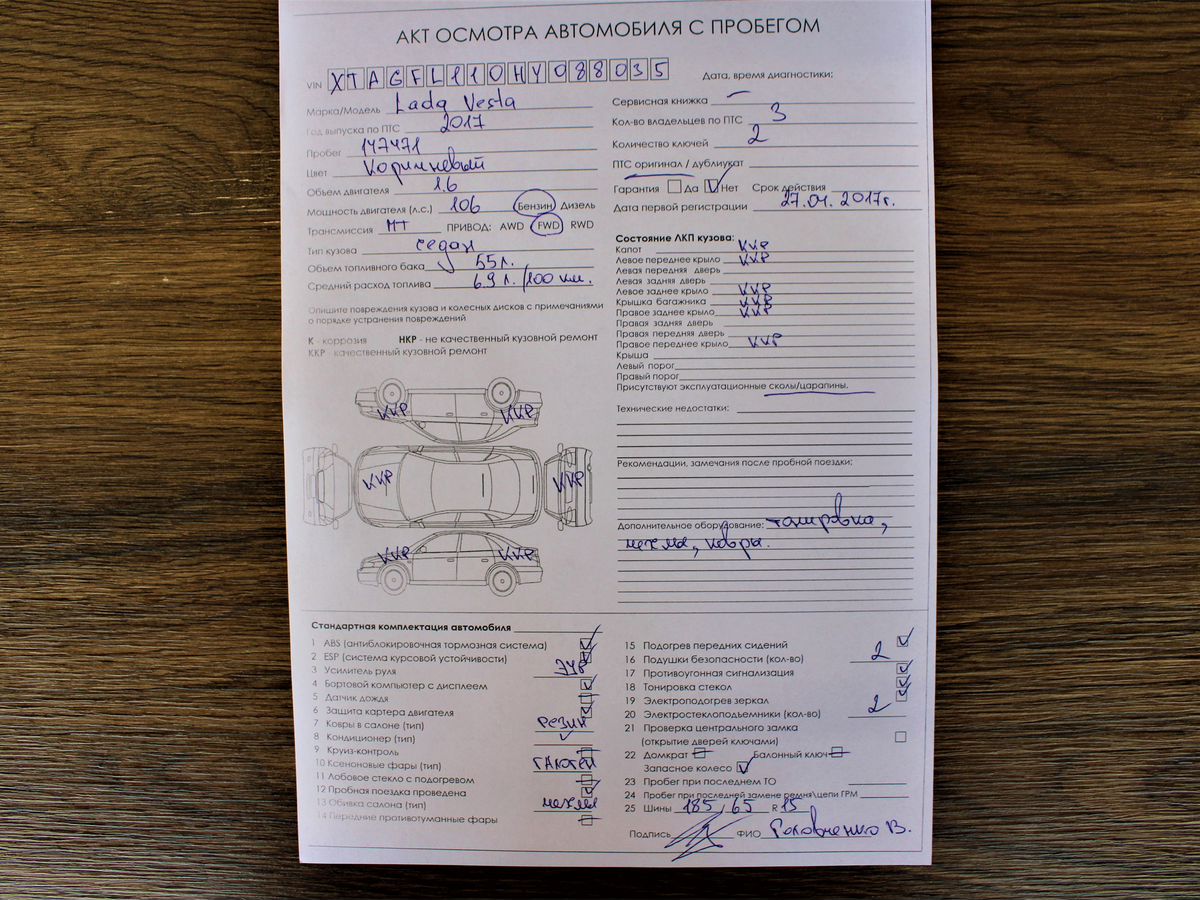 АКТ ОСМОТРА АВТОМОБИЛЯ С ПРОБЕГОМ
VIN XTAGFL110HY088035
Марка/Модель Lada Vesta
Год выпуска по ПТС 2017
Пробег 147471
Цвет Коричневый
Объем двигателя 1.6
Мощность двигателя (л.с.) 106 Бензин Дизель
Трансмиссия МТ ПРИВОД: AWD FWD RWD
Тип кузова седан
Объем топливного бака 55 л.
Средний расход топлива 6.9 л./100 км.
Опишите повреждения кузова и колесных дисков с примечаниями
о порядке устранения повреждений
К - коррозия НКР - не качественный кузовной ремонт
ККР - качественный кузовной ремонт
ККР ККР
ККР ККР
ККР ККР
Дата, время диагностики:
Сервисная книжка –
Кол-во владельцев по ПТС 3
Количество ключей 2
ПТС оригинал / дубликат
Гарантия Да Нет Срок действия
Дата первой регистрации 27.04.2017г.
Состояние ЛКП кузова:
Капот ККР
Левое переднее крыло ККР
Левая передняя дверь
Левая задняя дверь
Левое заднее крыло ККР
Крышка багажника ККР
Правое заднее крыло ККР
Правая задняя дверь
Правая передняя дверь
Правое переднее крыло ККР
Крыша
Левый порог
Правый порог
Присутствуют эксплуатационные сколы/царапины.
Технические недостатки:
Рекомендации, замечания после пробной поездки:
Дополнительное оборудование: тонировка,
чехлы, ковры.
Стандартная комплектация автомобиля
1 ABS (антиблокировочная тормозная система)
2 ESP (система курсовой устойчивости)
3 Усилитель руля ЭУР
4 Бортовой компьютер с дисплеем
5 Датчик дождя
6 Защита картера двигателя
7 Ковры в салоне (тип) РЕЗИН
8 Кондиционер (тип)
9 Круиз-контроль
10 Ксеноновые фары (тип) ГАЛОГЕН
11 Лобовое стекло с подогревом
12 Пробная поездка проведена
13 Обивка салона (тип) чехлы
14 Передние противотуманные фары
15 Подогрев передних сидений
16 Подушки безопасности (кол-во) 2
17 Противоугонная сигнализация
18 Тонировка стекол
19 Электроподогрев зеркал
20 Электростеклоподъемники (кол-во) 2
21 Проверка центрального замка
(открытие дверей ключами)
22 Домкрат Балонный ключ
Запасное колесо
23 Пробег при последнем ТО
24 Пробег при последней замене ремня\цепи ГРМ
25 Шины 185 / 65 R 15
Подпись ФИО Головченко В.